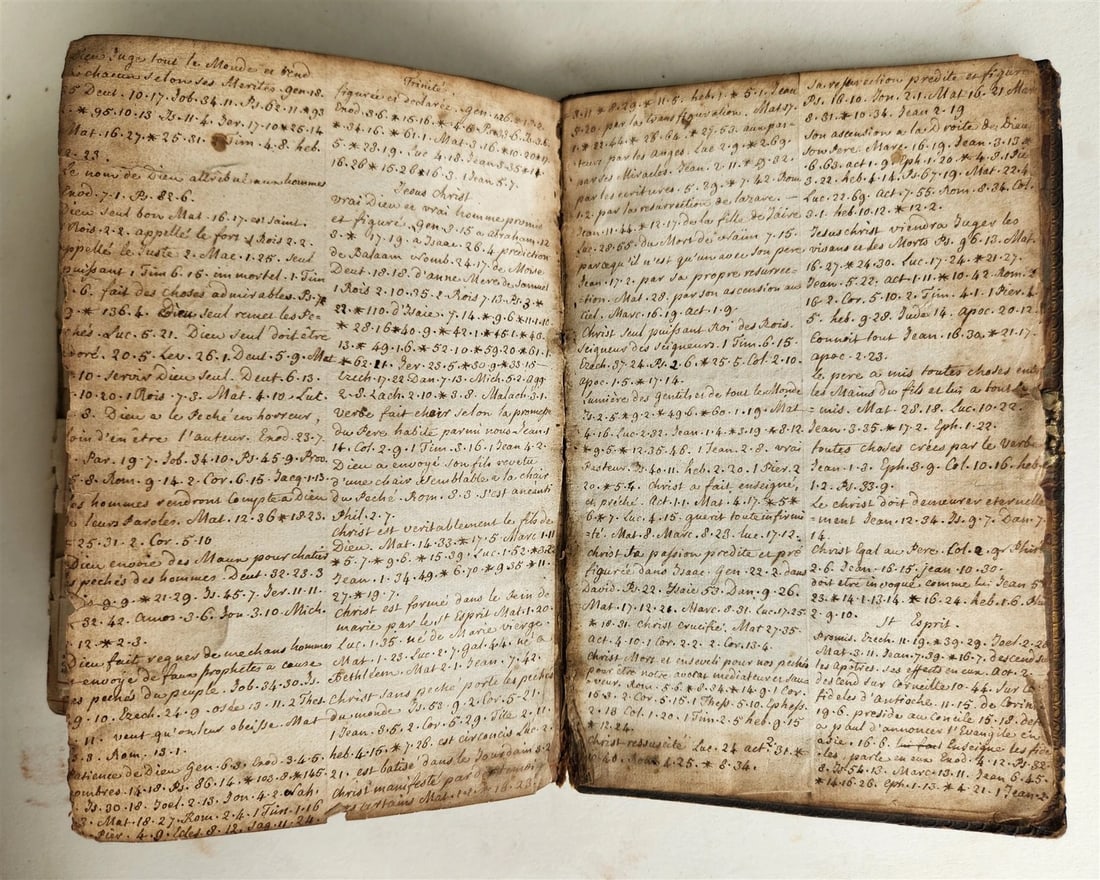 Dieu Juge tout le Monde et rend
a chacun selon ses Merites. gen. 18.
5 Deut. 10. 17. Job. 34. 11. Ps. 62. 11. * 93
* . 95. 10. 13 Ps. 11. 4. Jer. 17. 10 * 25. 14
Mat. 16. 27. * 25. 31. Tim. 4. 8. heb.
2. 23.
Le nom de Dieu attribué aux hommes
Exod. 7. 1. Ps. 82. 6.
Dieu seul bon Mat. 16. 17. est saint.
Rois. 2. 2. appellé le fort 1 Rois 2. 2.
appellé le Juste 2. Mac. 1. 25. seul
puissant 1 Tim 6. 15. immortel. 1. Tim
. 6. fait des choses admirables. Ps. 7
9. * 136. 4. Dieu seul remet les Pe-
chés. Luc. 5. 21. Dieu seul doit être
adoré. 20. 5. Lev. 26. 1. Deut. 5. 9. Mat
. 10. servir Dieu seul. Deut. 6. 13.
. 10. 20 1 Rois. 7. 3. Mat. 4. 10. Luc.
. 8. Dieu a le Peché en horreur,
loin d'en être l'auteur. Exod. 23. 7.
. Par. 19. 7. Job. 34. 10. Ps. 45. 9. Prov.
5. 8. Rom. 9. 14. 2. Cor. 6. 15. Jacq. 1. 13.
les hommes rendront Compte a Dieu
de leurs Paroles. Mat. 12. 36 * 18. 23.
* 25. 31. 2. Cor. 5. 10
Dieu envoie des Maux pour chatier
les pechés des hommes. Deut. 32. 23. 3
9. 9. * 21. 29. Is. 45. 7. Jer. 11. 11.
* 32. 42. Amos. 3. 6. Jon. 3. 10. Mich.
12. * 2. 3.
Dieu fait regner de mechans hommes
et envoye de faux prophètes a cause
des pechés du peuple. Job. 34. 30. Is.
9. 10. Ezech. 24. 9. oshe. 13. 11. 2 Thes.
. 11. veut qu'on leur obeisse. Mat
. 3. Rom. 13. 1.
Patience de Dieu Gen. 6. 3. Exod. 3. 4. 6.
nombres. 14. 18. Ps. 86. 14. * 103. 8 * 145.
. Is. 30. 18. Joel. 2. 13. Jon. 4. 2. Nah.
. 3. Mat. 18. 27. Rom. 2. 4. 1 Tim. 1. 16
. Pier. 4. 9. Ecles. 8. 12. Jaq. 11. 24.
Trinité
figurée et declarée. gen. 1. 26
Exod. 3. 6. * 15. 16.
* 34. 16. * 61. 1. Mat. 3. 16. * 10. 20 * 17.
5. * 28. 19. Luc. 4. 18. Jean. 3. 35 * 14.
16. 26 * 15. 26 * 16. 3. 1 Jean 5. 7.
Jesus Christ
vrai Dieu et vrai homme promis
et figuré. Gen. 3. 15 a abraham. 12
3. * 17. 19. a Isaac. 26. 4. prediction
de Balaam nomb. 24. 17. de Moïse
Deut. 18. 18. d'anne Mere de Samuel
1 Rois 2. 10. 35. 2 Rois. 7. 13. Ps. 2. *
22. * 110. d'Isaïe. 7. 14. * 9. 6 * 11. 1. 10
* 28. 16 * 40. 9. * 42. 1 * 45. 1 * 46.
13. * 49. 1. 6. * 52. 10. * 59. 20 * 61. 1.
* 62. 11. Jer. 23. 5. * 30. 9. * 33. 15 —
Ezech. 17. 22 Dan. 7. 13. Mich. 5. 2. Agg.
2. 8. Zach. 2. 10. * 3. 8. Malach. 3. 1.
verbe fait chair selon la promesse
du Pere habite parmi nous. Jean. 1
14. Col. 2. 9. 1 Tim. 3. 16. 1 Jean. 4. 2.
Dieu a envoyé son fils revetu
d'une chair semblable a la chair
du Peché. Rom. 8. 3. s'est aneanti
Phil. 2. 7.
Christ est veritablement le fils de
Dieu. Mat. 14. 33. * 17. 5. Marc 1. 11
* 5. 7. * 9. 6. * 15. 39. Luc. 1. 52 * 3. 22
Jean. 1. 34. 49. * 6. 70. * 9. 35 * 11.
27. * 19. 7.
Christ est formé dans le sein de
marie par le St Esprit Mat. 1. 20
Luc. 1. 35. né de Marie vierge.
Mat. 1. 23. Luc. 2. 7. Gal. 4. 4. né a
Bethléem. Mat. 2. 1. Jean. 7. 42.
Christ sans peché porte les pechés
du monde. Is. 53. 9. 2. Cor. 5. 21.
1 Jean. 3. 5. 2. Cor. 5. 29. Tite. 2. 11.
heb. 4. 15. * 7. 26. est circoncis Luc. 2.
21. est batisé dans le Jourdain 3. 2
Christ manifesté par des temoig
certains Mat. 1.
3. 11 * 8. 29. * 11. 5. heb. 1. * 5. 1. Jean
5. 20. par la transfiguration. Mat. 17.
1. * 22. 44. * 26. 64. * 27. 53. aux pas-
teurs par les anges. Luc 2. 9. * 2. 69.
par ses Miracles. Jean. 2. 11. * 9. 32.
par les ecritures. 5. 39. * 7. 42. Rom
1. 2. par la resurrection de lazare. —
Jean. 11. 44. * 12. 17. de la fille de Jaïre
Luc. 28. 55. du Mort de naïm 7. 15.
parce qu'il n'est qu'un avec son pere
Jean. 17. 2. par sa propre resurrec-
tion. Mat. 28. par son ascension aux
Ciel. Marc. 16. 19. Act. 1. 9
Christ seul puissant Roi des Rois.
Seigneur des seigneurs. 1 Tim. 6. 15.
Ezech. 37. 24. Ps. 2. 6. * 25. 5. Col. 2. 10.
apoc. 1. 5. * 17. 14.
Lumière des gentils et de tout le Monde
Is. 2. 5. * 9. 2. * 49. 6. * 60. 1. 19. Mat
4. 16. Luc. 2. 32. Jean. 1. 4. * 3. 19. * 8. 12
* 9. 5. * 12. 35. 46. 1. Jean. 2. 8. vrai
Pasteur. Is. 40. 11. heb. 2. 20. 1. Pier. 2
20. * 5. 4. Christ a fait enseigné,
et prêché. Act. 1. 1. Mat. 4. 17. * 5
6. * 7. Luc. 4. 15. guerit toute infirmi
té. Mat. 8. Marc. 8. 23. luc. 17. 12.
Christ Sa passion predite et pré
figurée dans Isaac. Gen. 22. 2. dans
David. Ps. 22. Isaie 53. Dan. 9. 26.
Mat. 17. 12. 21. Marc. 8. 31. Luc. 17. 25.
* 18. 31. Christ crucifié. Mat 27. 35.
Act. 4. 10. 1 Cor. 2. 2. 2. Cor. 13. 4.
Christ Mort et enseveli pour nos pechés
pour être notre avocat mediateur et sau
veur. Rom. 5. 6 * 8. 34 * 14. 9. 1 Cor.
15. 3. 2. Cor. 5. 15. 1 Thess. 5. 10. Ephess.
2. 18 Col. 1. 20. 1 Tim. 2. 5 heb. 9. 15
* 12. 24.
Christ ressuscité Luc. 24 act. 2. 31. *
10. 40. Rom. 4. 25. * 8. 34.
Sa resurrection predite et figurée
Ps. 16. 10. Jon. 2. 1. Mat 16. 21 Marc
8. 31. * 10. 34. Jean 2. 19
Son ascension a la Droite de Dieu
son Pere. Marc. 16. 19. Jean. 3. 13 *
6. 63. act. 1. 9. Eph. 1. 20. * 4. 8. 1 Pie
3. 22. heb. 4. 14. Ps. 67. 19. Mat. 22. 4
Luc. 22. 69. Act. 7. 55. Rom. 8. 34. Col.
3. 1. heb. 10. 12. * 12. 2.
Jesus christ viendra Juger les
vivans et les Morts Ps. 96. 13. Mat.
16. 27. * 24. 30. Luc. 17. 24. * 21. 27.
Jean. 5. 22. act. 1. 11. * 10. 42. Rom. 2.
16. 2. Cor. 5. 10. 2. Tim. 4. 1. 1 Pier. 4
5. heb. 9. 28. Jude 14. Apoc. 20. 12.
Connoit tout Jean. 16. 30. * 21. 17.
apoc. 2. 23.
Le pere a mis toutes choses entre
les Mains du fils et lui a tout sou
= mis. Mat. 28. 18. Luc. 10. 22.
Jean. 3. 35. * 17. 2. Eph. 1. 22.
toutes choses crées par le verbe
Jean. 1. 3. Eph. 3. 9. Col. 10. 16. heb.
1. 2. Ps. 33. 9.
Le christ doit demeurer eternelle
= ment Jean. 12. 34. Is. 9. 7. Dan. 7.
14.
Christ Egal au Pere. Col. 2. 9.
2. 6. Jean. 16. 15. jean 10. 30.
doit être invoqué comme lui Jean. 5
23. * 14. 1. 13. 14. * 16. 24. heb. 1. 6.
2. 9. 10.
St Esprit.
Promis. Ezech. 11. 19. * 39. 29. Joel. 2. 28
Mat. 3. 11. Jean. 7. 39. * 16. 7. descend sur
les apôtres. ses effets en eux. Act. 2.
descend sur Corneille 10. 44. sur les
fideles d'antioche 11. 15. de Corin
19. 6. preside au Concile 15. 18. def
a paul d'annoncer l'Evangile en
asie. 16. 6. Enseigne les fide
les, parle en eux Exod. 4. 12. Ps. 32
8. Is. 54. 13. Marc. 13. 11. Jean 6. 45.
* 14. 16. 26. Eph. 1. 13. * 4. 21. 1 Jean. 2.